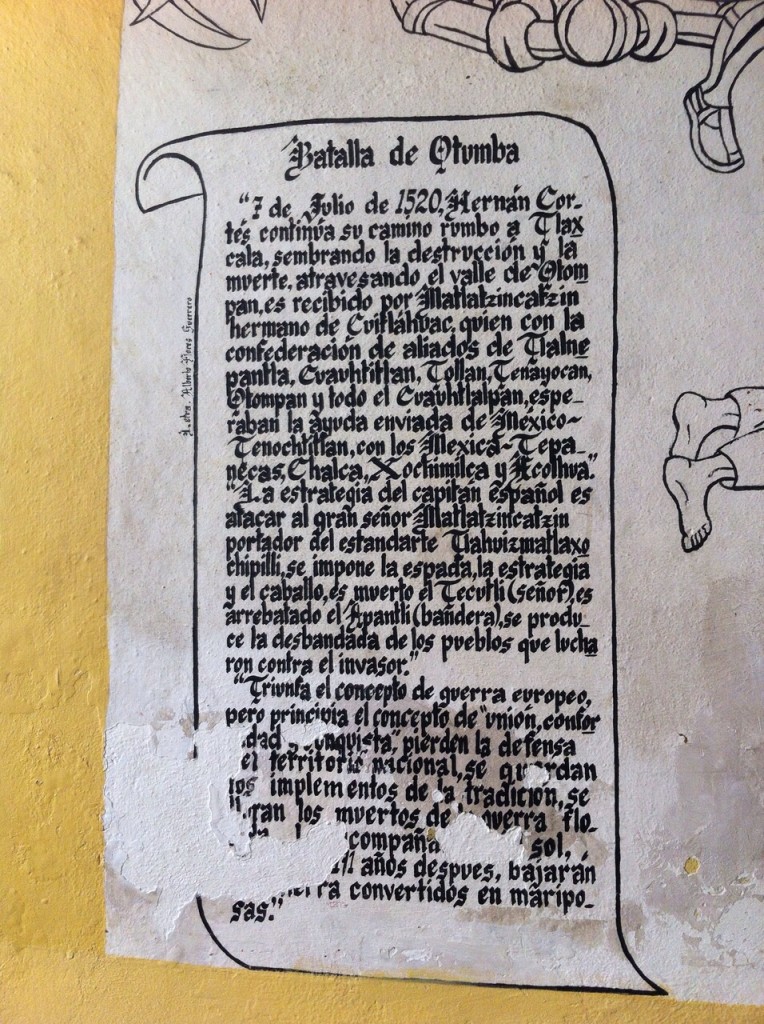 Batalla de Otumba
"7 de Julio de 1520, Hernán Cor-
tés continúa su camino rumbo a Tlax
cala, sembrando la destrucción y la
muerte, atravesando el valle de Otom
pan, es recibido por Matlatzincatzin
hermano de Cuitláhuac, quien con la
confederación de aliados de Tlalne
pantla, Cuauhtitlan, Tollan, Tenayocan,
Otompan y todo el Cuauhtlalpan, espe-
raban la ayuda enviada de México-
Tenochtitlan, con los Mexica-Tepa-
necas, Chalca, Xochimilca y Acolhua."
"La estrategia del capitán español es
atacar al gran señor Matlatzincatzin
portador del estandarte Tlahuizmatlaxo
chipilli, se impone la espada, la estrategia
y el caballo, es muerto el Tecutli (señor), es
arrebatado el Apantli (bandera), se produ-
ce la desbandada de los pueblos que lucha
ron contra el invasor."
"Triunfa el concepto de guerra europeo,
pero principia el concepto de "unión, confor
dad conquista", pierden la defensa
el territorio nacional, se guardan
los implementos de la tradición, se
los muertos de guerra flo-
compaña sol,
años despues, bajarán
convertidos en maripo-
sas."
Letra. Alberto Flores Guerrero